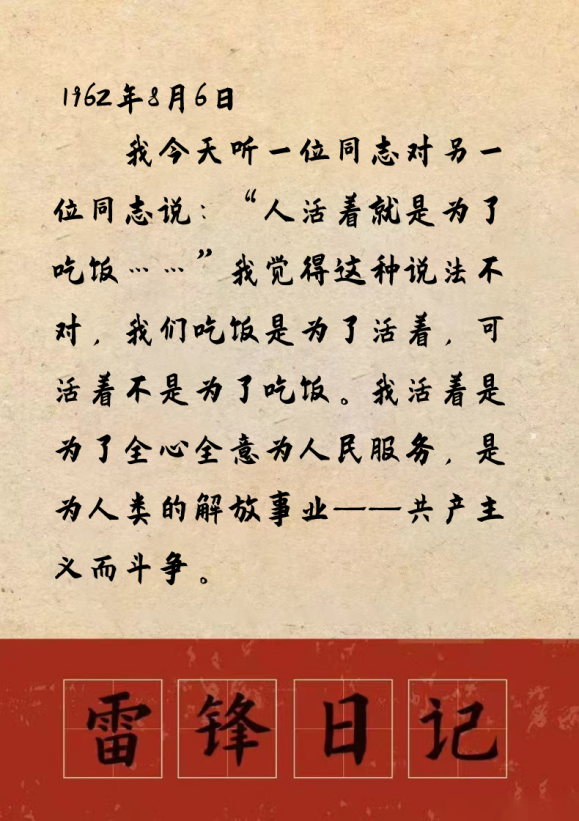 1962年8月6日
我今天听一位同志对另一
位同志说：“人活着就是为了
吃饭……”我觉得这种说法不
对，我们吃饭是为了活着，可
活着不是为了吃饭。我活着是
为了全心全意为人民服务，是
为人类的解放事业——共产主
义而斗争。
雷锋日记